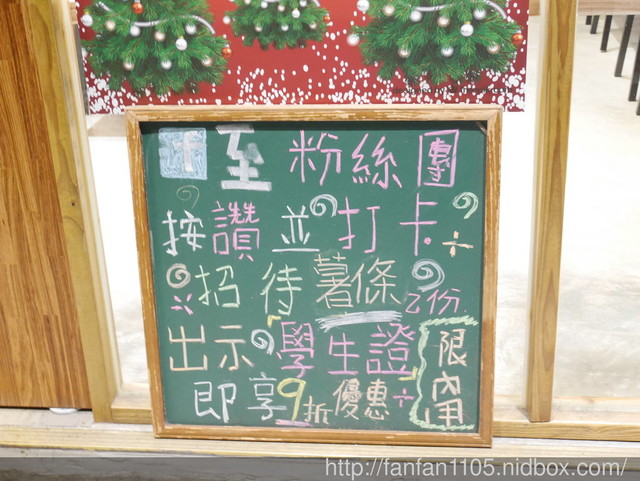 至粉絲團
按讚並打卡
招待薯條乙份
出示學生證
即享9折優惠
限內用
http://fanfan1105.nidbox.com/